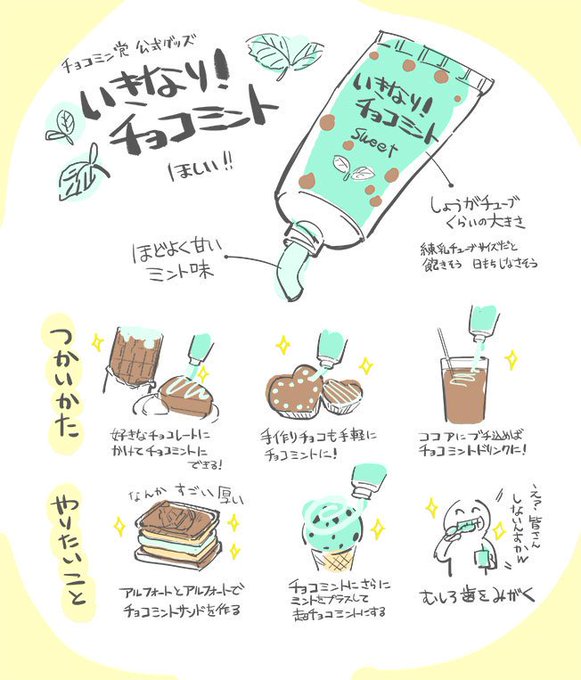 チョコミン党 公式グッズ
いきなり!
チョコミント
ほしい!!
いきなり!
チョコミント
sweet
しょうがチューブ
くらいの大きさ
練乳チューブサイズだと
飽きそう 日もちしなさそう
ほどよく甘い
ミント味
つかいかた
好きなチョコレートに
かけてチョコミントに
できる!
手作りチョコも手軽に
チョコミントに!
ココアにブチ込めば
チョコミントドリンクに!
やりたいこと
なんか すごい 厚い
アルフォートとアルフォートで
チョコミントサンドを作る
チョコミントにさらに
ミントをプラスして
超チョコミントにする
え?皆さん
しないんすかw
むしろ歯をみがく